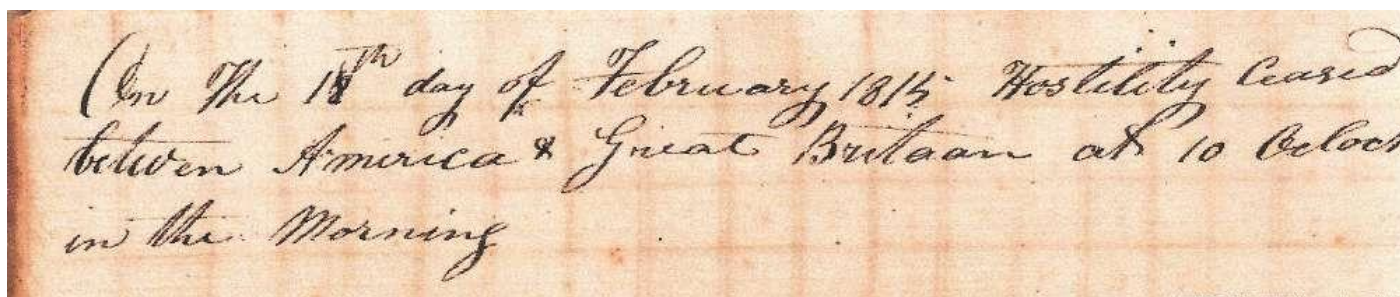 (On The 18th day of February 1815 Hostility Ceased
between America & Great Britaan at 10 Oclock
in the Morning